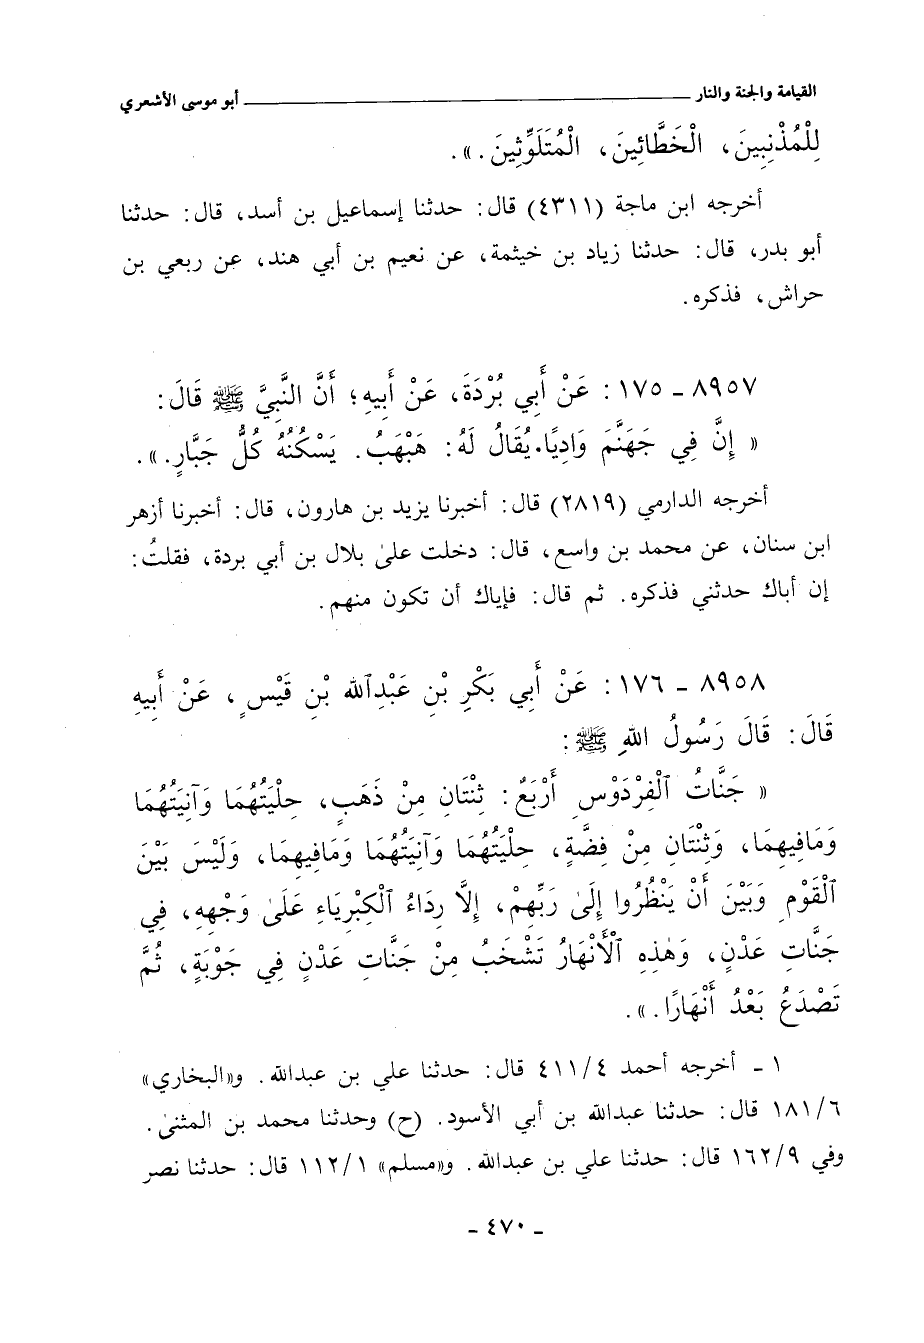 القيامة والجنة والنار ــــــ أبو موسى الأشعري
لِلْمُذْنِبِينَ، الْخَطَّائِينَ، الْمُتَلَوِّثِينَ.».
أخرجه ابن ماجة (٤٣١١) قال: حدثنا إسماعيل بن أسد، قال: حدثنا
أبو بدر، قال: حدثنا زياد بن خيثمة، عن نعيم بن أبي هند، عن ربعي بن
حراش، فذكره.
٨٩٥٧ ـ ١٧٥: عَنْ أَبِي بُرْدَةَ، عَنْ أَبِيهِ؛ أَنَّ النَّبِيَّ ﷺ قَالَ:
« إِنَّ فِي جَهَنَّمَ وَادِيًا. يُقَالُ لَهُ: هَبْهَبُ. يَسْكُنُهُ كُلُّ جَبَّارٍ.».
أخرجه الدارمي (٢٨١٩) قال: أخبرنا يزيد بن هارون، قال: أخبرنا أزهر
ابن سنان، عن محمد بن واسع، قال: دخلت علىٰ بلال بن أبي بردة، فقلتُ:
إن أباك حدثني فذكره. ثم قال: فإياك أن تكون منهم.
٨٩٥٨ ـ ١٧٦: عَنْ أَبِي بَكْرِ بْنِ عَبْدِٱللهِ بْنِ قَيْسٍ، عَنْ أَبِيهِ
قَالَ: قَالَ رَسُولُ اللهِ ﷺ:
« جَنَّاتُ ٱلْفِرْدَوْسِ أَرْبَعٌ: ثِنْتَانِ مِنْ ذَهَبٍ، حِلْيَتُهُمَا وَآنِيَتُهُمَا
وَمَافِيهِمَا، وَثِنْتَانِ مِنْ فِضَّةٍ، حِلْيَتُهُمَا وَآنِيَتُهُمَا وَمَافِيهِمَا، وَلَيْسَ بَيْنَ
ٱلْقَوْمِ وَبَيْنَ أَنْ يَنْظُرُوا إِلَىٰ رَبِّهِمْ، إِلَّا رِدَاءُ ٱلْكِبْرِيَاءِ عَلَىٰ وَجْهِهِ، فِي
جَنَّاتِ عَدْنٍ، وَهٰذِهِ ٱلْأَنْهَارُ تَشْخَبُ مِنْ جَنَّاتِ عَدْنٍ فِي جَوْبَةٍ، ثُمَّ
تَصْدَعُ بَعْدُ أَنْهَارًا.».
١ ـ أخرجه أحمد ٤/ ٤١١ قال: حدثنا علي بن عبدالله. و«البخاري»
٦/ ١٨١ قال: حدثنا عبدالله بن أبي الأسود. (ح) وحدثنا محمد بن المثنىٰ.
وفي ٩/ ١٦٢ قال: حدثنا علي بن عبدالله. و«مسلم» ١/ ١١٢ قال: حدثنا نصر
ـ ٤٧٠ ـ